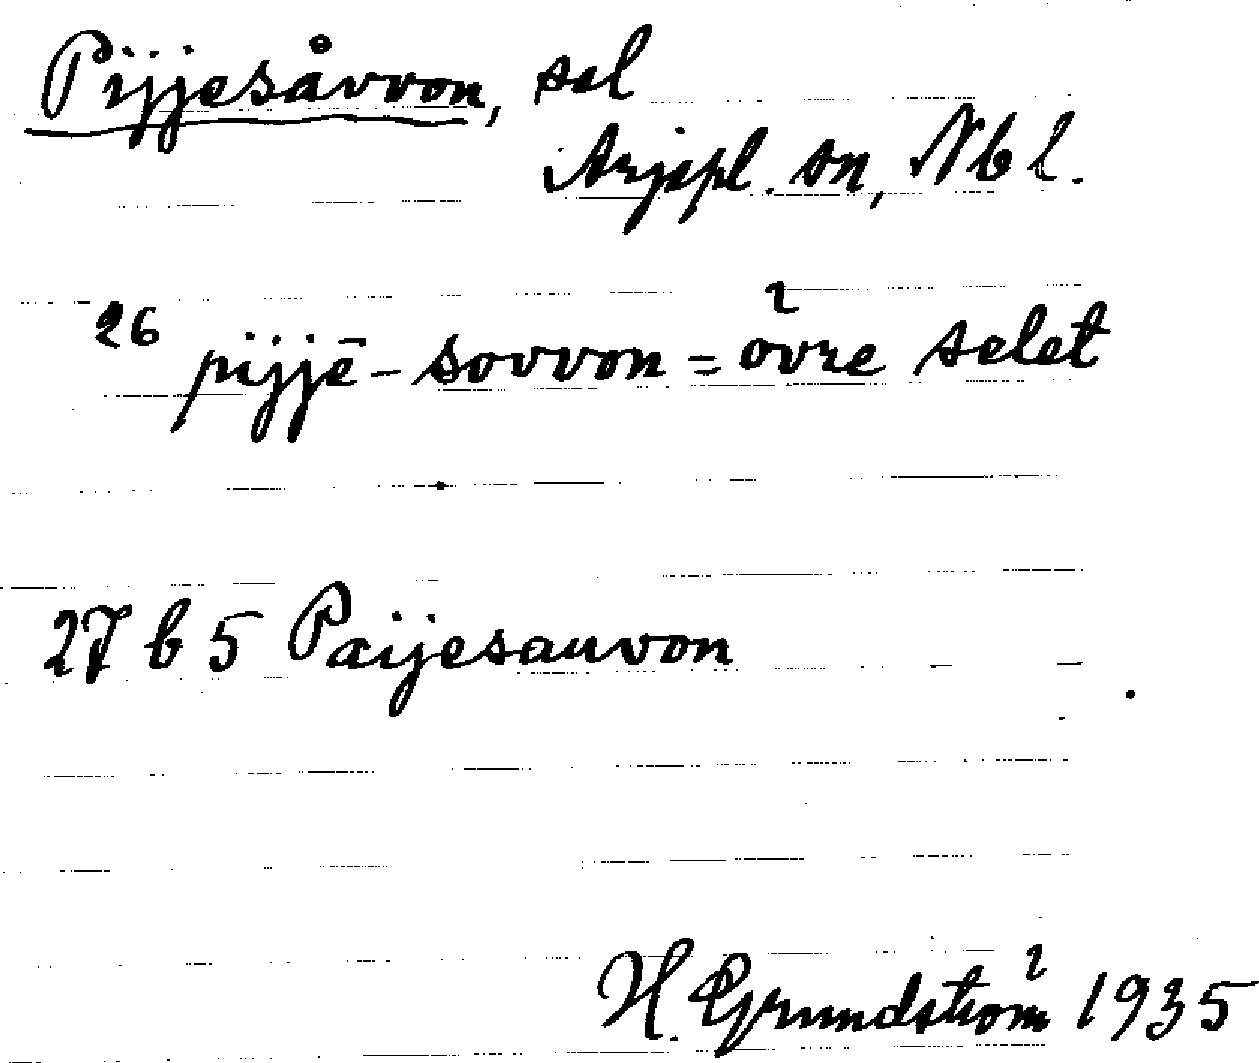 Pijjesåvvon, sel
Arjepl. sn, Nbl.
26 pijjē-sovvon = övre selet
27 b 5 Paijesauvon
H. Grundström 1935